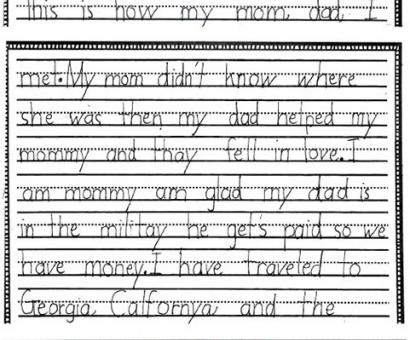 This is how my mom, dad, I
met. My mom didn't know where
she was then my dad helped my
mommy and thay fell in love. I
am mommy am glad my dad is
in the militay he get's paid so we
have money. I have traveled to
Georgia, Calfornya, and the